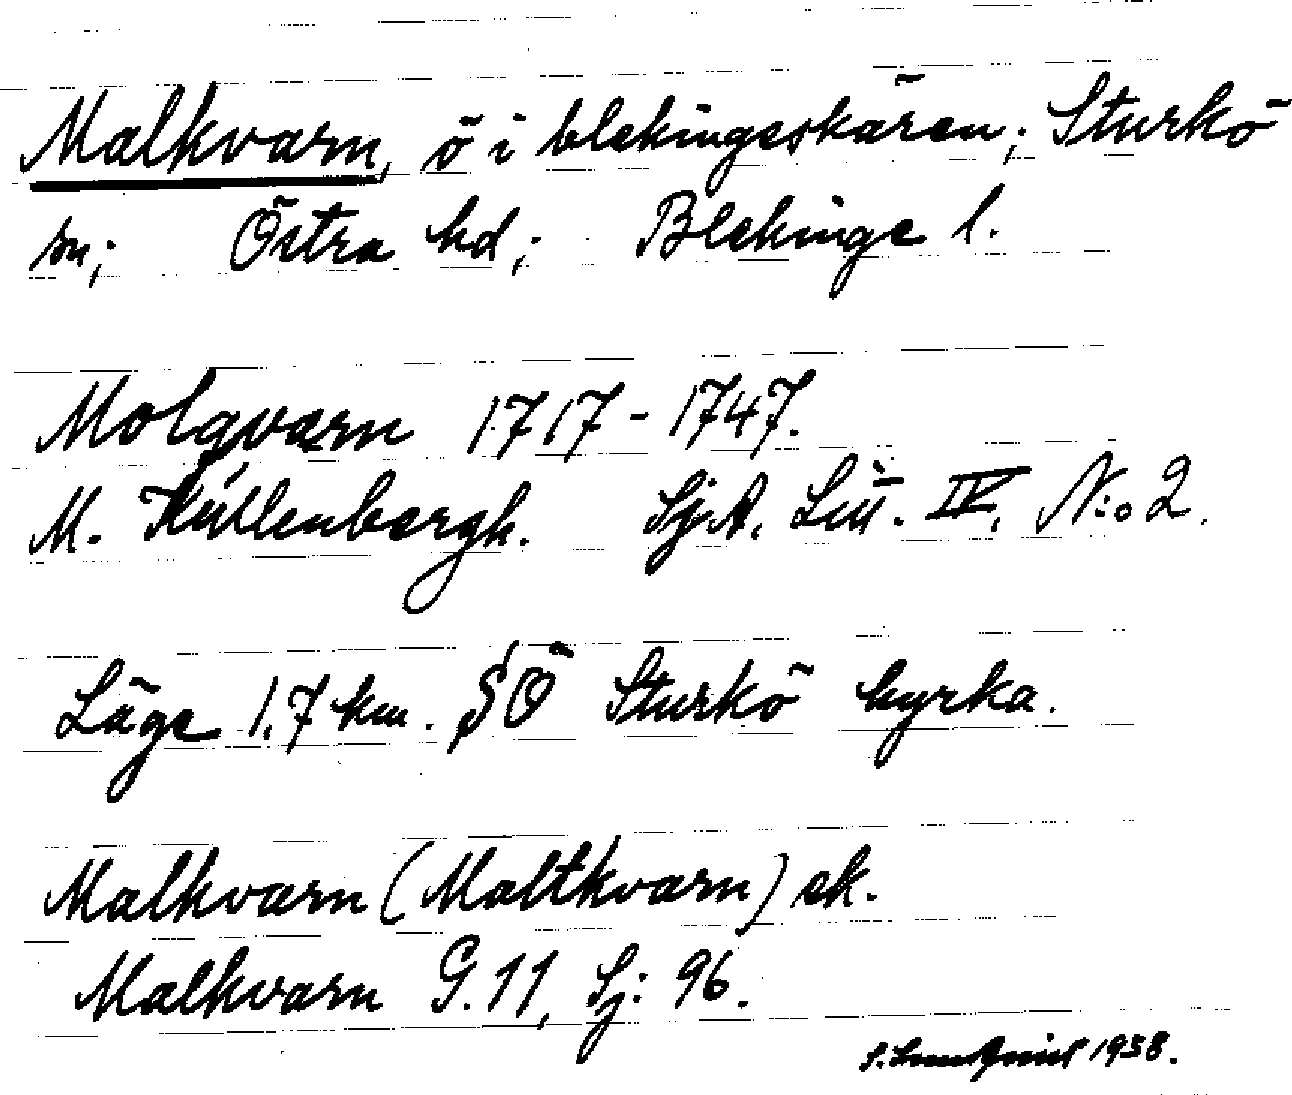 Malkvarn, ö i blekingeskären; Sturkö
sn; Östra hd; Blekinge l.
Molqvarn 1717-1747.
M. Küllenbergh. Sj.A. Litt. IV. N:o 2.
Läge 1.7 km. SÖ Sturkö kyrka.
Malkvarn (Maltkvarn) ek.
Malkvarn G.11, Sj: 96.
S. 1938.